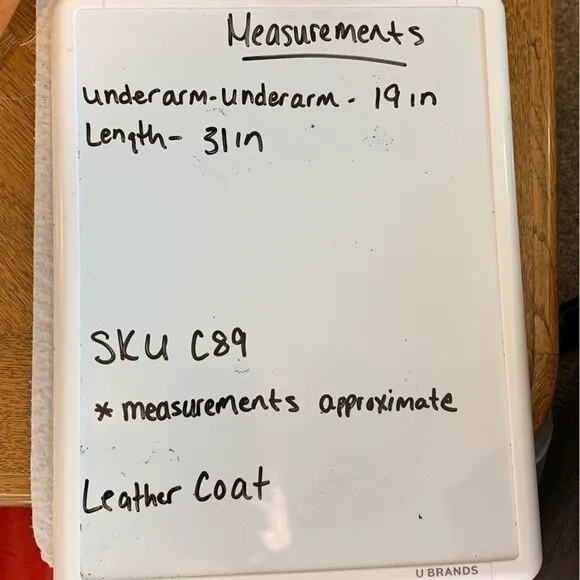 Measurements
underarm-underarm - 19in
Length- 31in
SKU C89
* measurements approximate
Leather Coat
U BRANDS